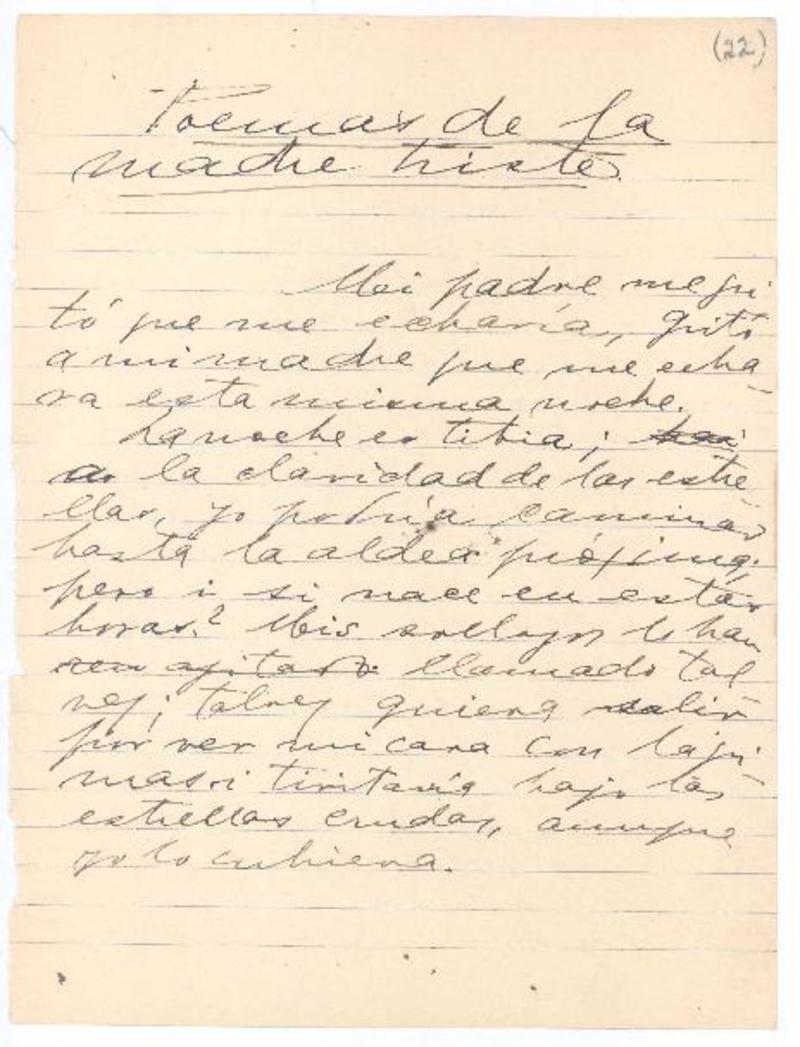 (22)
Poemas de la
madre triste
Mi padre me gri-
tó que me echaría, gritó
a mi madre que me echa-
ra esta misma noche.
La noche es tibia;
a la claridad de las estre
llas, yo podría caminar
hasta la aldea próxima;
pero i si nace en estas
horas? Mis sollozos lo han
agitado llamado tal
vez; talvez quiera salir
por ver mi cara con lágri-
mas i tiritaría bajo las
estrellas crudas, aunque
yo lo cubriera.